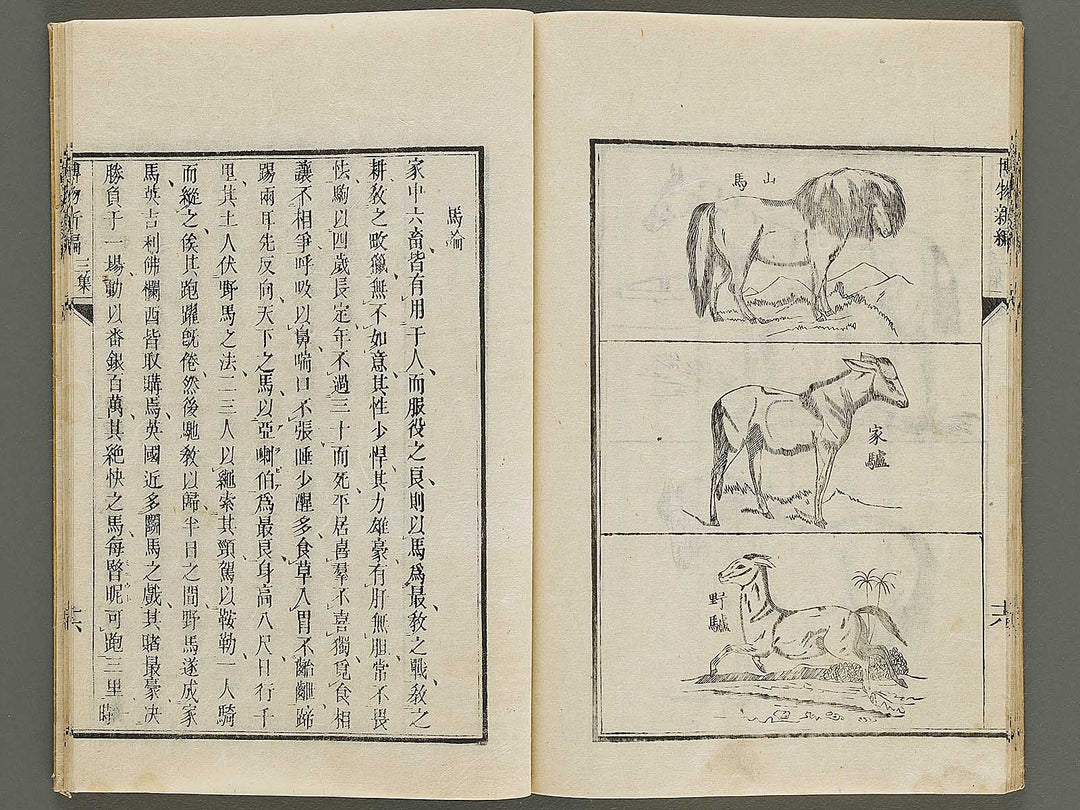 博物新編
山馬
家驢
野驢
馬論
家中六畜皆有用于人而服役之良則以馬爲最敎之戰敎之
耕敎之畋獵無不如意其性少悍其力雄豪有肝無胆常不畏
怯駒以四歲長定年不過三十而死平居喜羣不喜獨覓食相
讓不相爭呼吸以鼻喘口不張睡少醒多食草入胃不齝齝蹄
踢兩耳先反向天下之馬以亞喇伯爲最良身高八尺日行千
里其土人伏野馬之法二三人以繩索其頸駕以鞍勒一人騎
而縱之俟其跑躍旣倦然後馳敎以歸半日之間野馬遂成家
馬英吉利佛欄西皆取購焉英國近多鬭馬之戲其賭最豪决
勝負于一場動以番銀百萬其絶快之馬每瞥呢可跑三里時
博物新編 三集